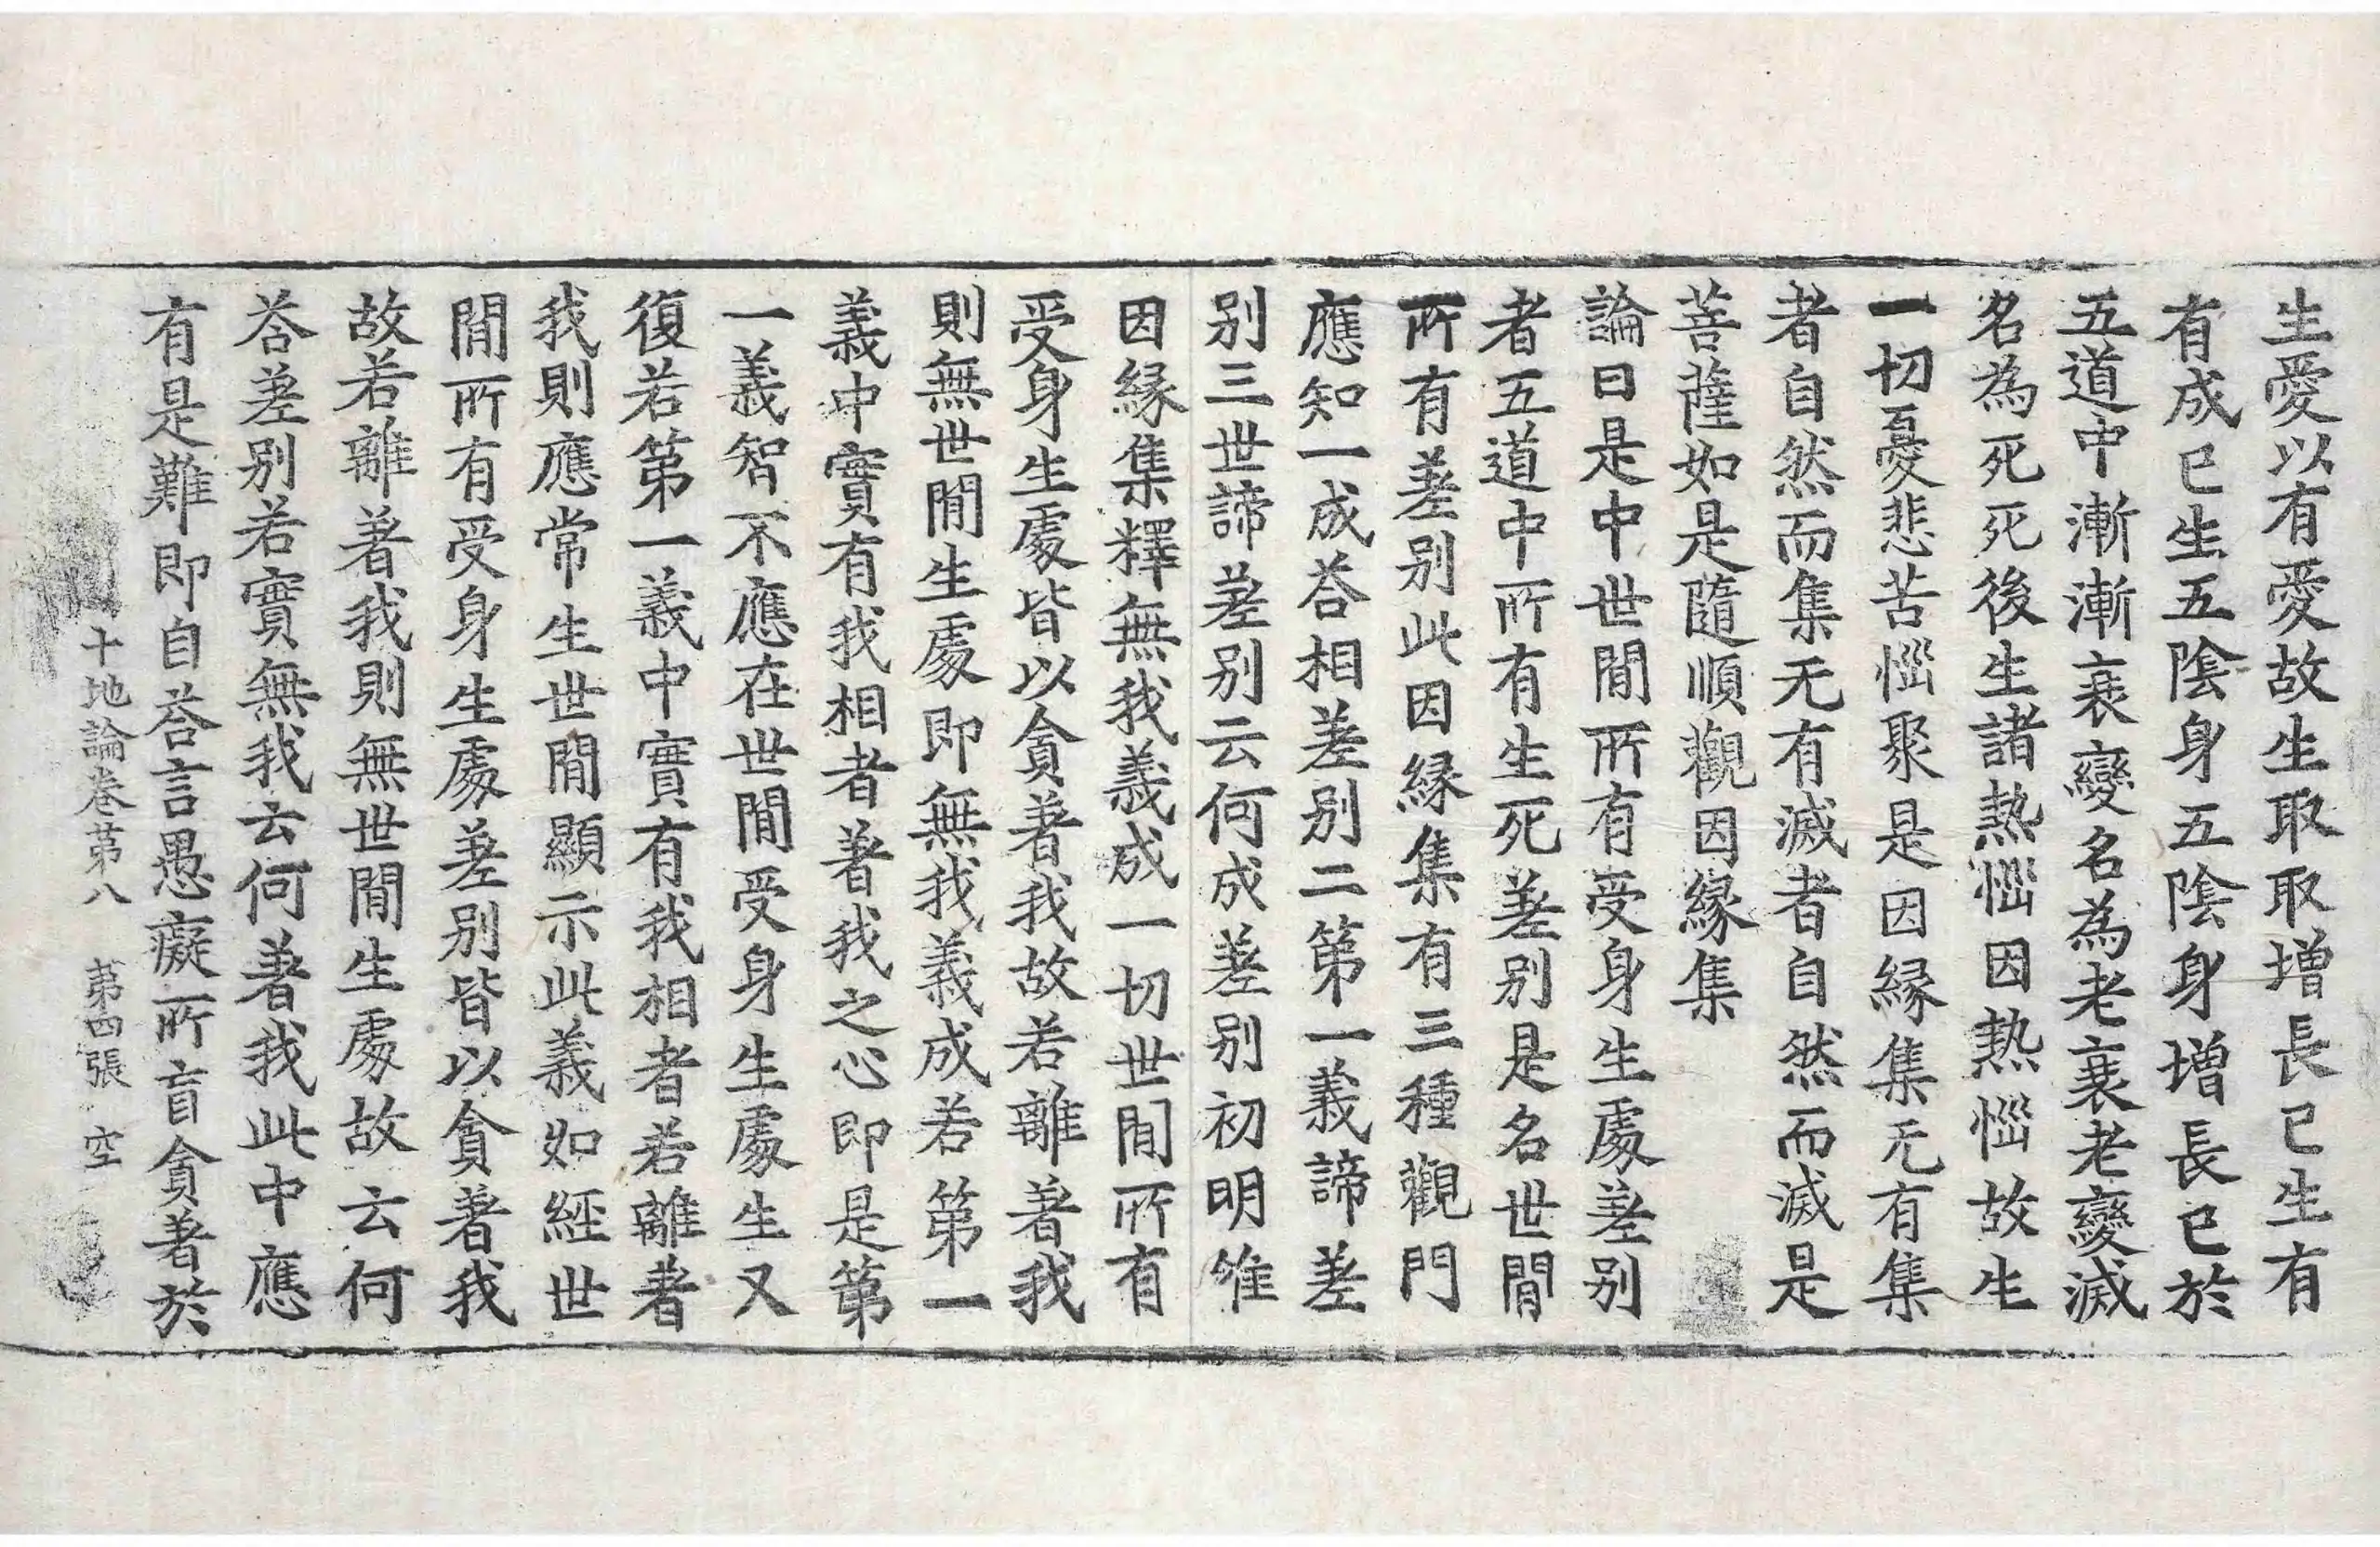 生愛以有愛故生取取增長已生有
有成已生五陰身五陰身增長已於
五道中漸漸衰變名為老衰老變滅
名為死死後生諸熱惱因熱惱故生
一切憂悲苦惱聚是因緣集无有集
者自然而集无有滅者自然而滅是
菩薩如是隨順觀因緣集
論曰是中世閒所有受身生處差别
者五道中所有生死差别是名世閒
所有差别此因緣集有三種觀門
應知一成荅相差别二第一義諦差
别三世諦差别云何成差别初明唯
因緣集釋無我義成一切世閒所有
受身生處皆以貪著我故若離著我
則無世閒生處即無我義成若第一
義中實有我相者著我之心即是第
一義智不應在世閒受身生處生又
復若第一義中實有我相者若離著
我則應常生世閒顯示此義如經世
閒所有受身生處差别皆以貪著我
故若離著我則無世閒生處故云何
荅差别若實無我云何著我此中應
有是難即自荅言愚癡所盲貪著於
十地論卷第八 第四張 空